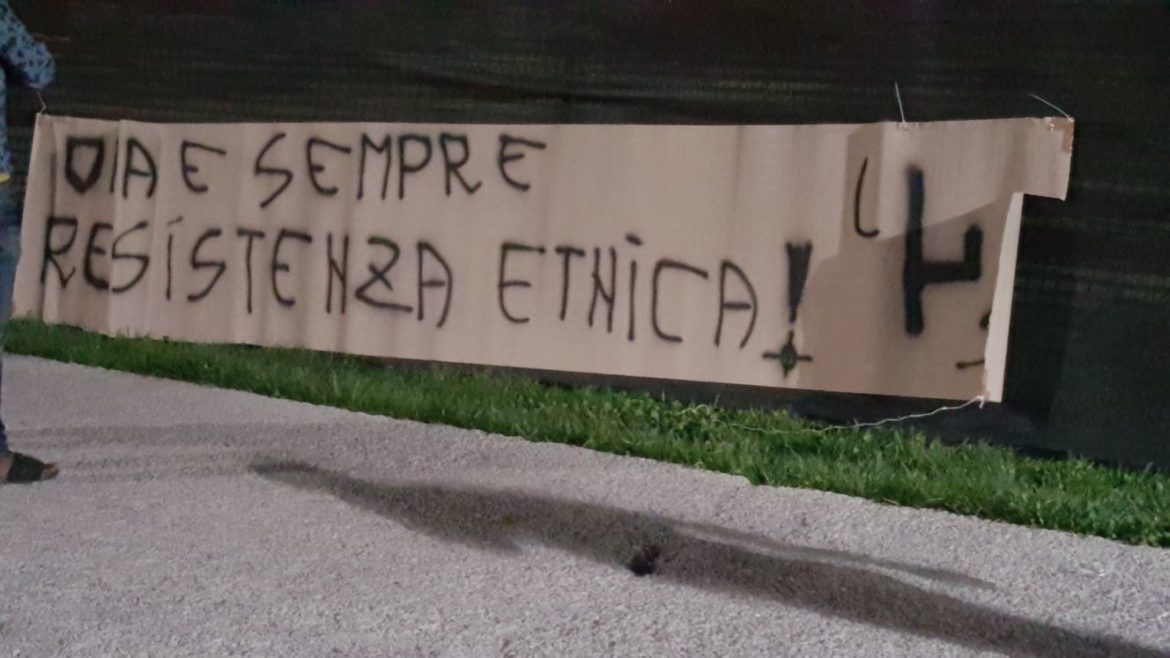 ORA E SEMPRE
RESISTENZA ETNICA!